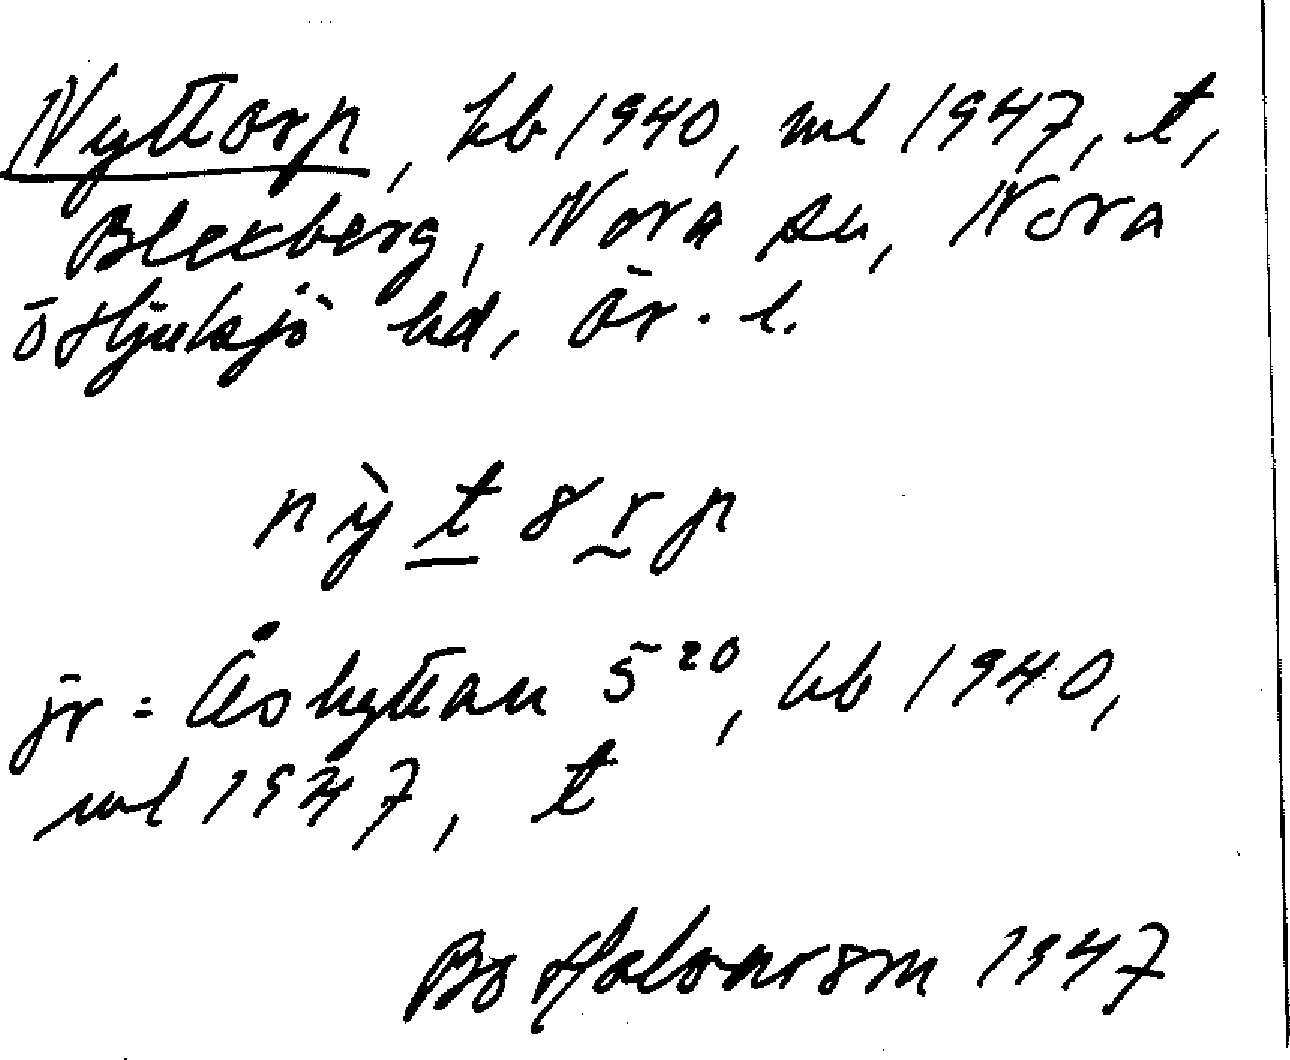 Nyttorp, kb 1940, ml 1947, t,
Blexberg, Nora sn, Nora
o Hjulsjö hd, Ör. l.
nỳt8rp
jr = Åshyttan 5²⁰, kb 1940,
ml 1947, t
Bo Halvarson 1947